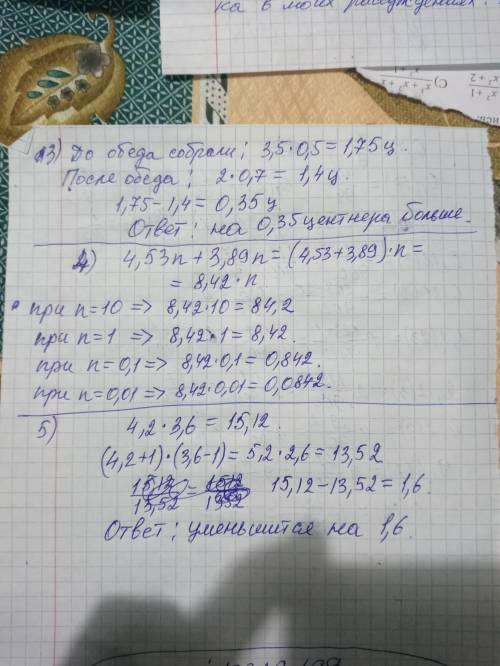 ка в моих рассуждениях.
3) До обеда собрали: 3,5·0,5=1,75ц
После обеда: 2·0,7 = 1,4ц.
1,75-1,4=0,35ц
Ответ: на 0,35центнера больше.
4) 4,53n+3,89n=(4,53+3,89)·n=
= 8,42·n.
при n=10 => 8,42·10=84,2
при n=1 => 8,42·1=8,42.
при n=0,1=> 8,42·0,1=0,842.
при n=0,01=> 8,42·0,01=0,0842.
5) 4,2·3,6=15,12.
(4,2+1)·(3,6-1)=5,2·2,6=13,52
15,12-13,52=1,6.
Ответ: уменьшится на 1,6.